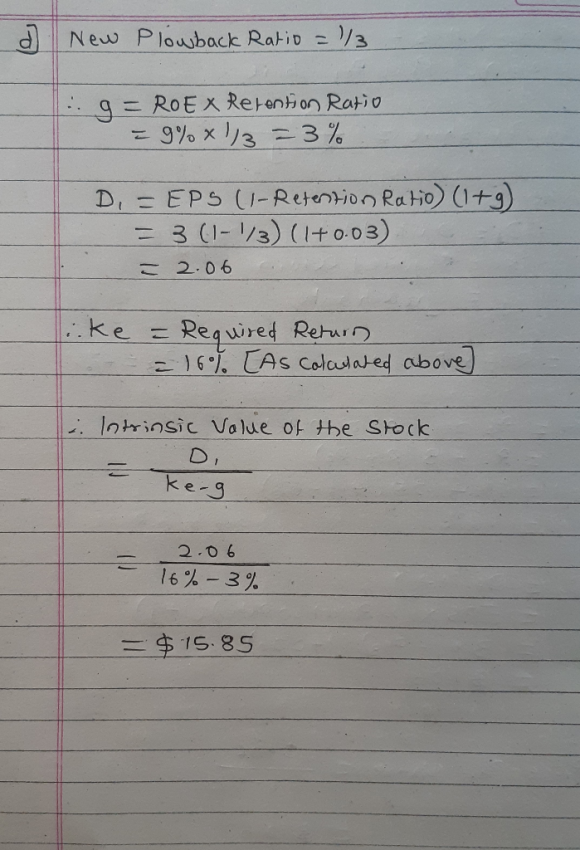 d] New Plowback Ratio = 1/3
∴ g = ROE × Retention Ratio
= 9% × 1/3 = 3%
D₁ = EPS (1-Retention Ratio) (1+g)
= 3 (1-1/3) (1+0.03)
= 2.06
∴ Ke = Required Return
= 16% [As Calculated above]
∴ Intrinsic Value of the Stock
= D₁
Ke-g
= 2.06
16% - 3%
= $ 15.85